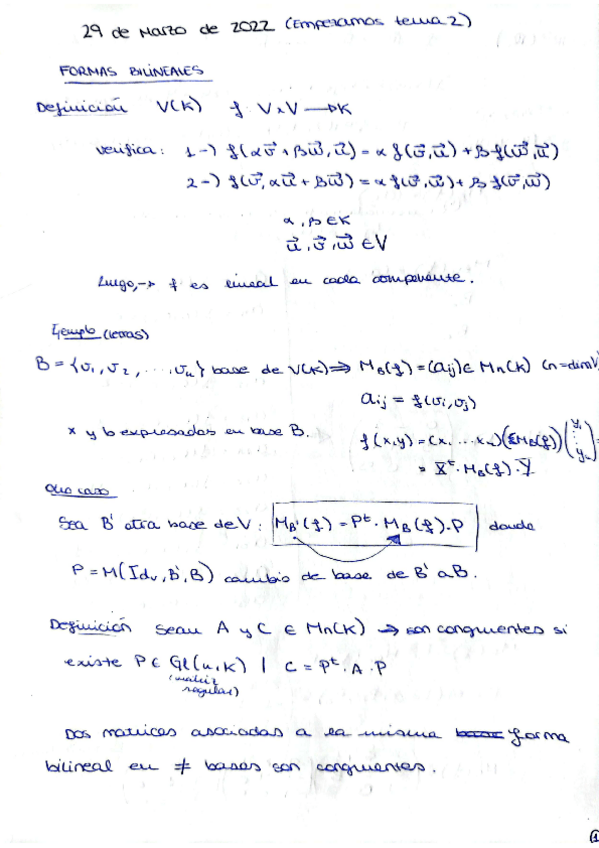 29 de Marzo de 2022 (Empezamos tema 2)
FORMAS BILINEALES
Definición V(K) f: V x V → K
verifica: 1-) f(α𝑣⃗ + β𝑤⃗, 𝑢⃗) = α f(𝑣⃗, 𝑢⃗) + β f(𝑤⃗, 𝑢⃗)
2-) f(𝑣⃗, α𝑢⃗ + β𝑤⃗) = α f(𝑣⃗, 𝑢⃗) + β f(𝑣⃗, 𝑤⃗)
α, β ∈ K
𝑢⃗, 𝑣⃗, 𝑤⃗ ∈ V
Luego, → f es lineal en cada componente.
Ejemplo (letras)
B = {v₁, v₂, ..., vₙ} base de V(K) ⇒ M_B(f) = (aij) ∈ Mn(K) (n = dim V
aij = f(vi, vj)
x y b expresadas en base B. f(x,y) = (x, ... xₙ)(M_B(f))(y₁ ⋮ yₙ) =
= X^t. M_B(f). Y
Otro caso
Sea B' otra base de V: M_B'(f) = P^t. M_B(f). P donde
P = M(Id_v, B', B) cambio de base de B' a B.
Definición Sean A y C ∈ Mn(K) → son congruentes si
existe P ∈ Gl(n, K) | C = P^t. A. P
(matriz
regular)
Dos matrices asociadas a la misma forma
bilineal en ≠ bases son congruentes.
1